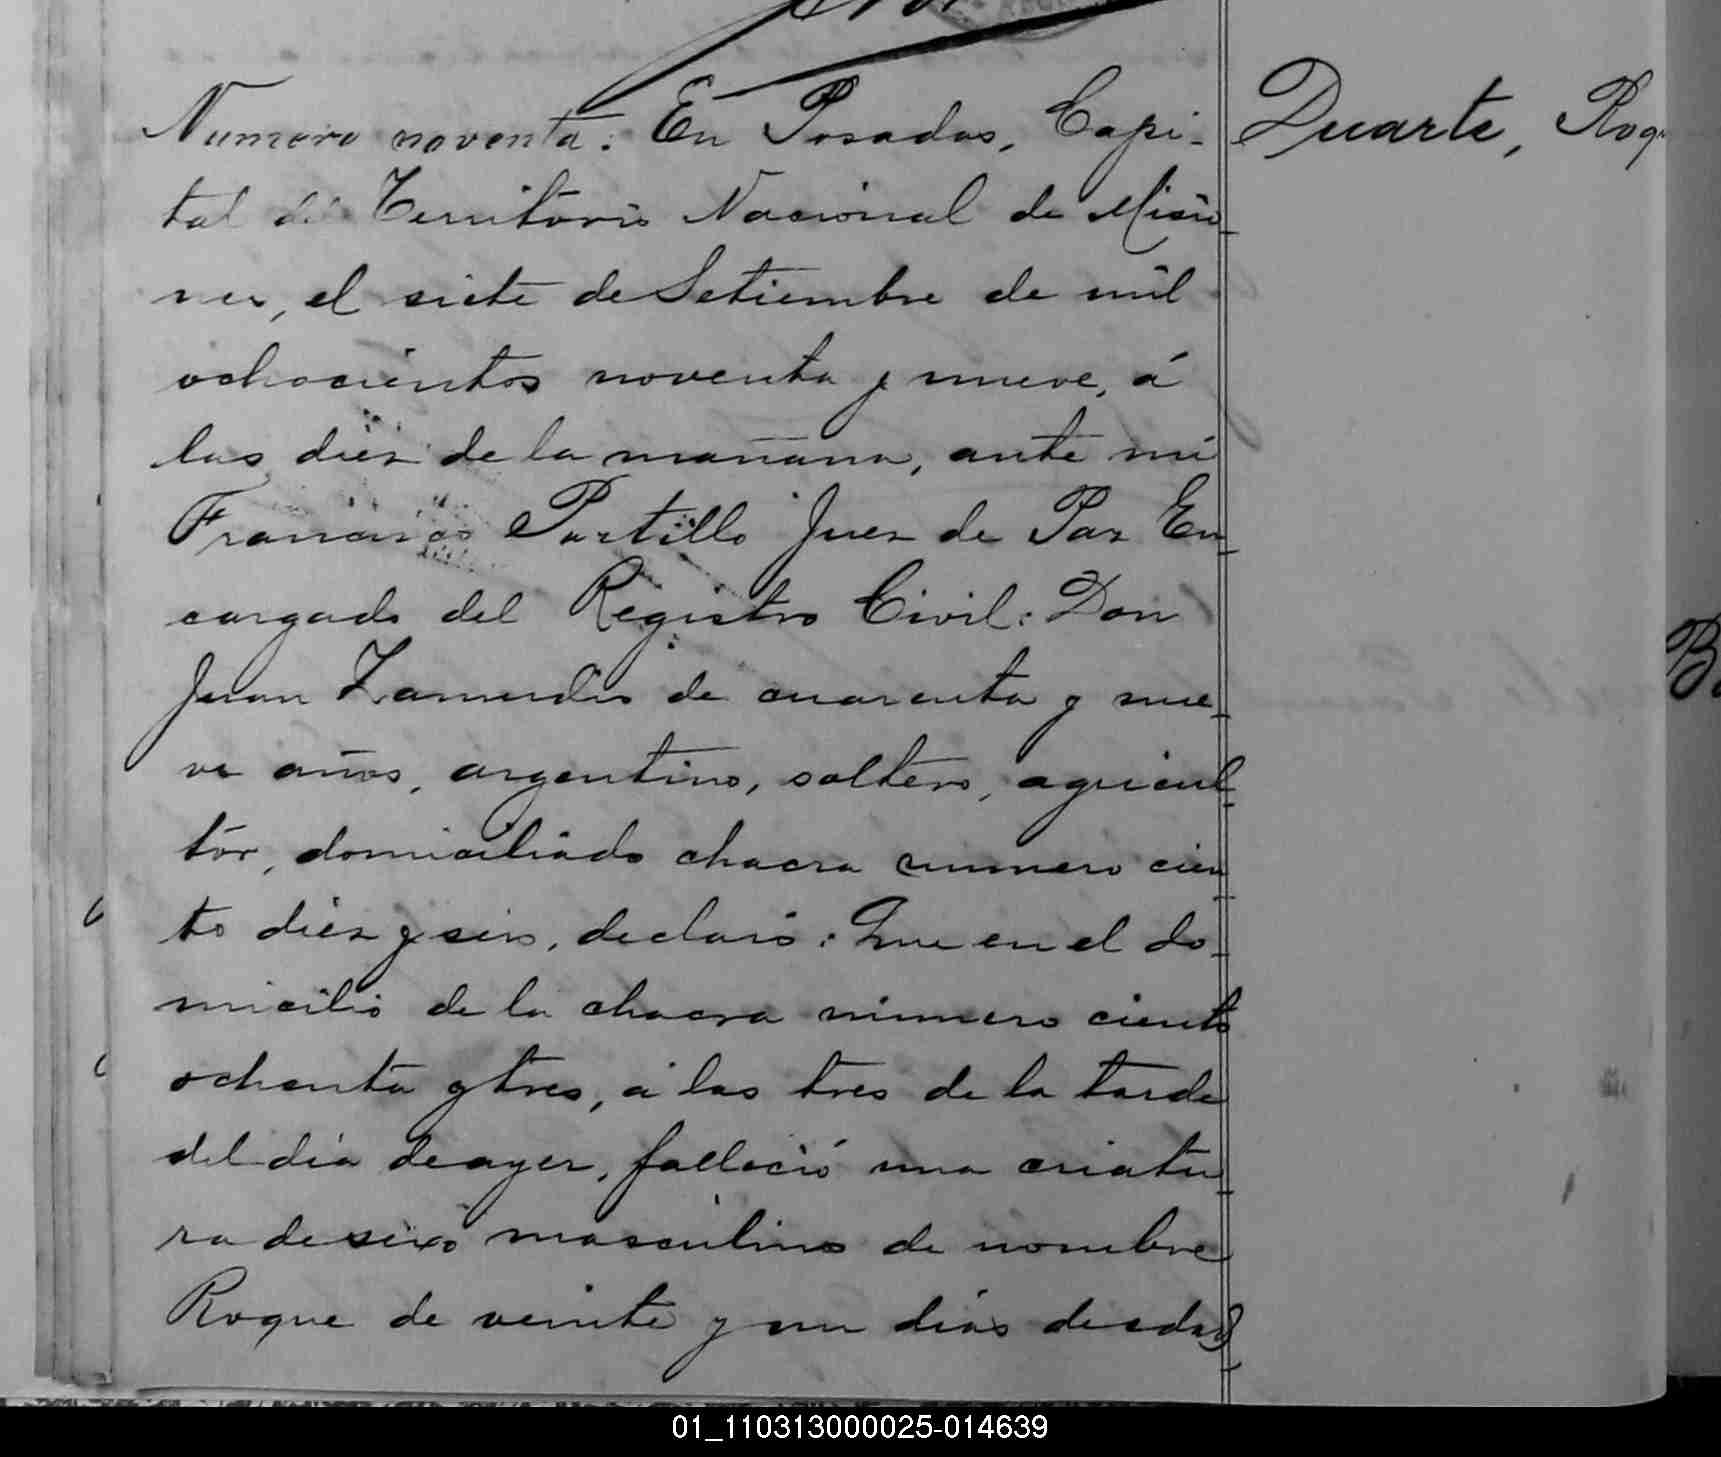 Numero noventa: En Posadas, Capi-
Duarte, Roq
tal del Territorio Nacional de Misio-
nes, el siete de Setiembre de mil
ochocientos noventa y nueve, á
las diez de la mañana, ante mi
Francisco Portillo Juez de Paz En-
cargado del Registro Civil: Don
Juan de cuarenta y nue-
ve años, argentino, soltero, agricul-
tor, domiciliado chacra numero cien-
to diez y seis, declaró: Que en el do-
micilio de la chacra numero ciento
ochenta y tres, á las tres de la tarde
del dia de ayer, falleció una criatu-
ra de sexo masculino de nombre
Roque de veinte y un dias de edad
01_110313000025-014639